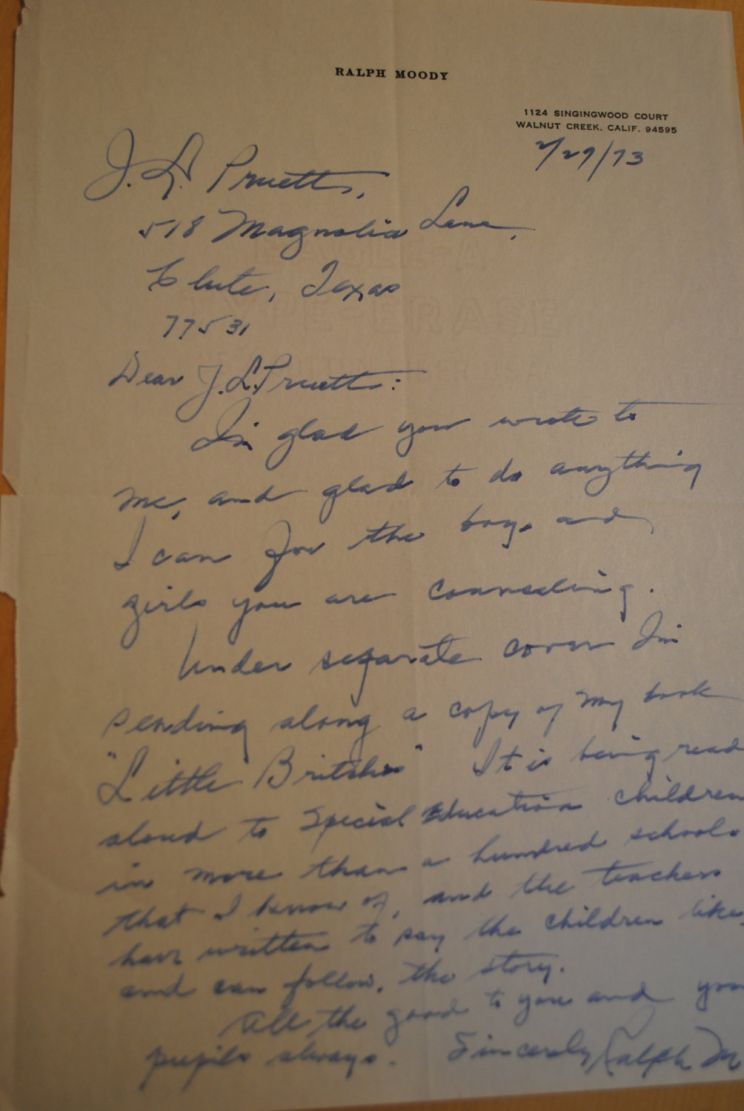 RALPH MOODY
1124 SINGINGWOOD COURT
WALNUT CREEK, CALIF. 94595
2/29/73
J. L. Pruett,
518 Magnolia Lane,
Clute, Texas
77531
Dear J. L. Pruett:
I'm glad you wrote to
me, and glad to do anything
I can for the boys and
girls you are counseling.
Under separate cover I'm
sending along a copy of my book
"Little Britches" It is being read
aloud to Special Education children
in more than a hundred schools
that I know of, and the teachers
have written to say the children like,
and can follow, the story.
All the good to you and you
pupils always. Sincerely, Ralph M